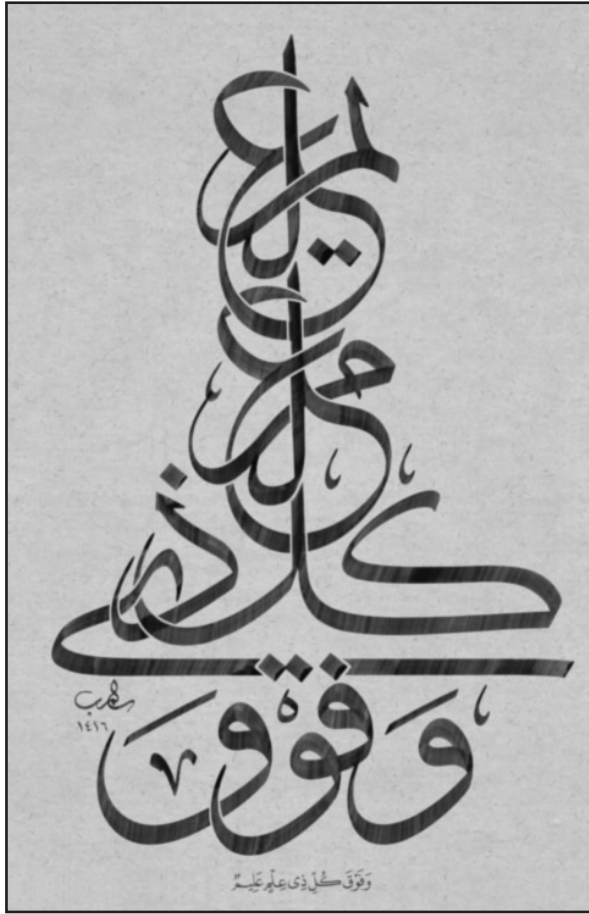 وفوق كل ذي علم عليم
١٤١٦
وَفَوْقَ كُلِّ ذِى عِلْمٍ عَلِيمٌ